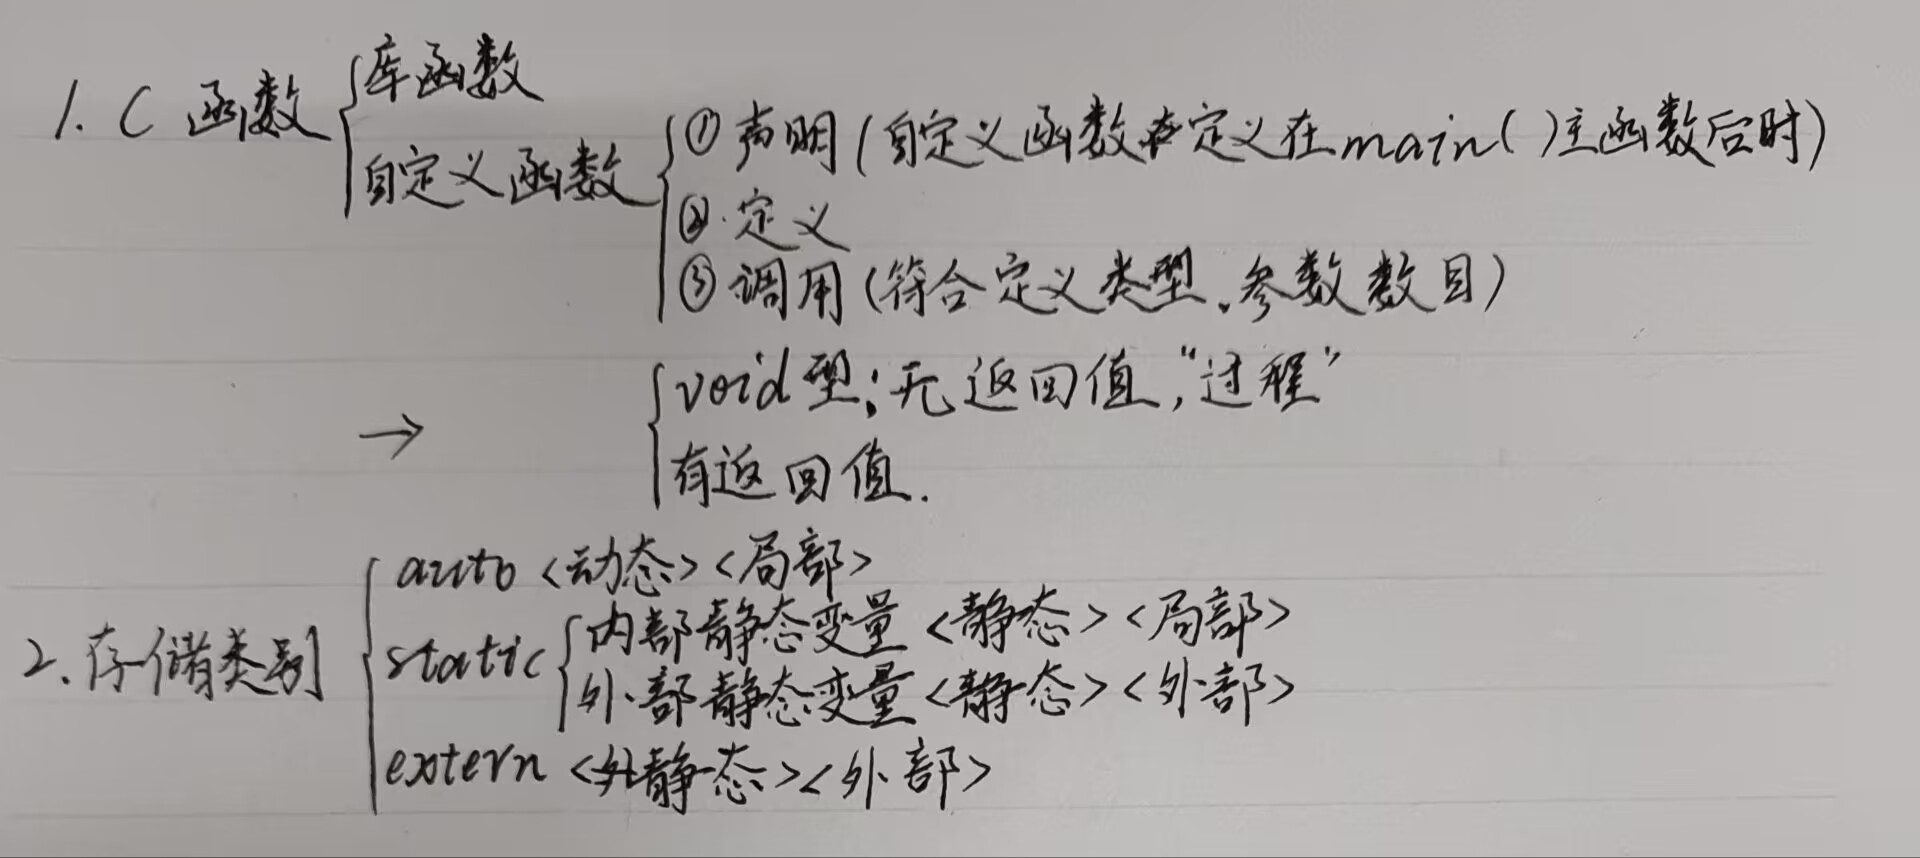 1. C 函数
库函数
自定义函数
① 声明 (自定义函数定义在main( )主函数后时)
②. 定义
③ 调用 (符合定义类型、参数数目)
→
void型; 无返回值, "过程"
有返回值.
2. 存储类别
auto <动态> <局部>
static
内部静态变量 <静态> <局部>
外部静态变量 <静态> <外部>
extern <静态> <外部>